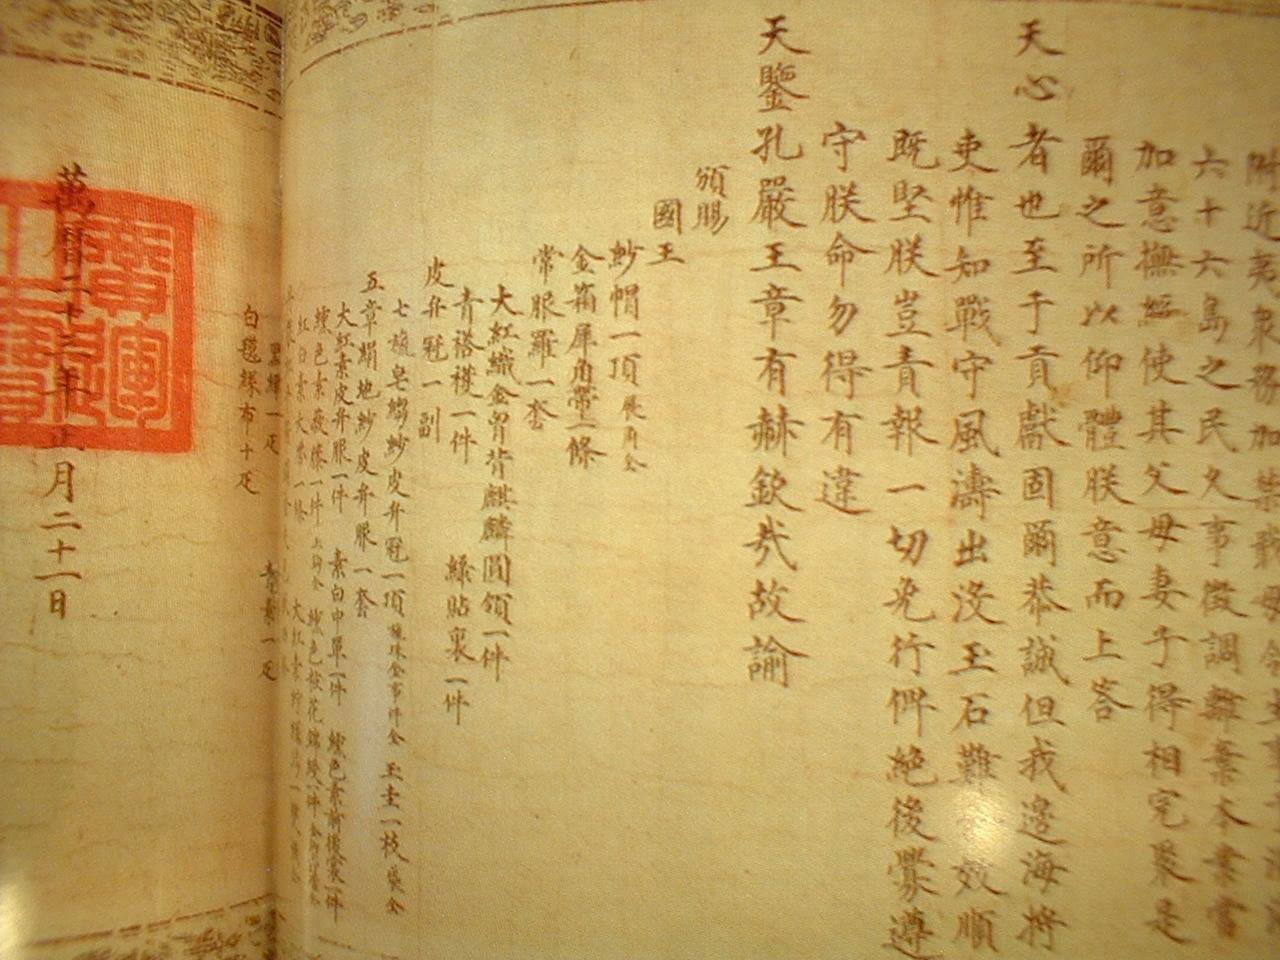 附近夷眾務加禁戢毋令
六十六島之民久事徵調離棄本業當
加意撫綏使其父母妻子得相完聚是
爾之所以仰體朕意而上答
天心者也至于貢獻固爾恭誠但我邊海將
吏惟知戰守風濤出沒玉石難 效順
既堅朕豈責報一切免行俾絕後釁遵
守朕命勿得有違
天鑒孔嚴王章有赫欽哉故諭
頒賜
國王
紗帽一頂展角全
金箱犀角帶一條
常服羅一套
大紅織金胷背麒麟圓領一件
青褡𧞤一件 綠貼裏一件
皮弁冠一副
七旒皂縐紗皮弁冠一頂旒珠金事件全 玉圭一枝袋全
五章絹地紗皮弁服一套
大紅素皮弁服一件 素白中單一件 纁色素前後裳一件
纁色素蔽膝一件玉鉤全 纁色粧花錦綬一件金鉤玉玎璫全
紅白素大帶一條 大紅素紵絲舃一雙襪全
黑綠一疋 青素一疋
白氁絲布十疋
萬曆二十三年正月二十一日